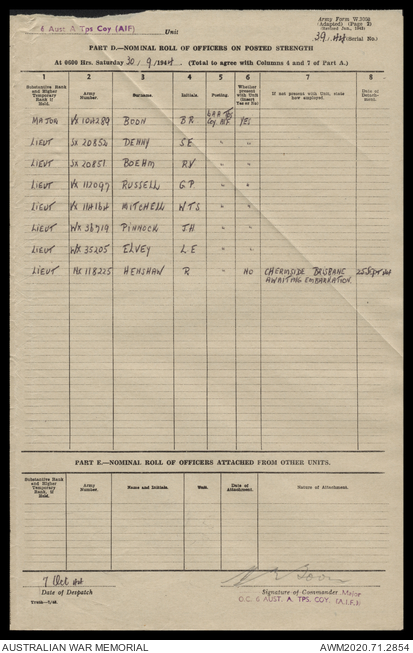 6 Aust A Tps Coy (AIF)
Unit
Army Form W.3008
(Adapted) (Page 2)
(Revised Jan., 1944)
39. (Serial No.)
PART D.—NOMINAL ROLL OF OFFICERS ON POSTED STRENGTH
At 0600 Hrs. Saturday 30/9/1944. (Total to agree with Columns 4 and 7 of Part A.)
1 2 3 4 5 6 7 8
Substantive Rank and Higher Temporary Rank if Held. Army Number. Surname. Initials. Posting. Whether present with Unit (Insert Yes or No) If not present with Unit, state how employed. Date of Detachment.
MAJOR BOON B R 6 A A Tps Coy AIF YES
LIEUT SX 20852 DENNY S E " "
LIEUT SX 20851 BOEHM R V " "
LIEUT VX 112097 RUSSELL G P " "
LIEUT MITCHELL W T S " "
LIEUT WX 36719 PINNOCK J H " "
LIEUT WX 35205 ELVEY L E " "
LIEUT 118225 HENSHAW R " NO CHERMSIDE BRISBANE 25 Sept 44
AWAITING EMBARKATION
PART E.—NOMINAL ROLL OF OFFICERS ATTACHED FROM OTHER UNITS.
Substantive Rank and Higher Temporary Rank, if Held. Army Number. Name and Initials. Unit. Date of Attachment. Nature of Attachment.
7 Oct 44
Date of Despatch
Boon
Signature of Commander Major
O.C. 6 AUST. A. TPS. COY. (A.I.F.)
AUSTRALIAN WAR MEMORIAL
AWM2020.71.2854